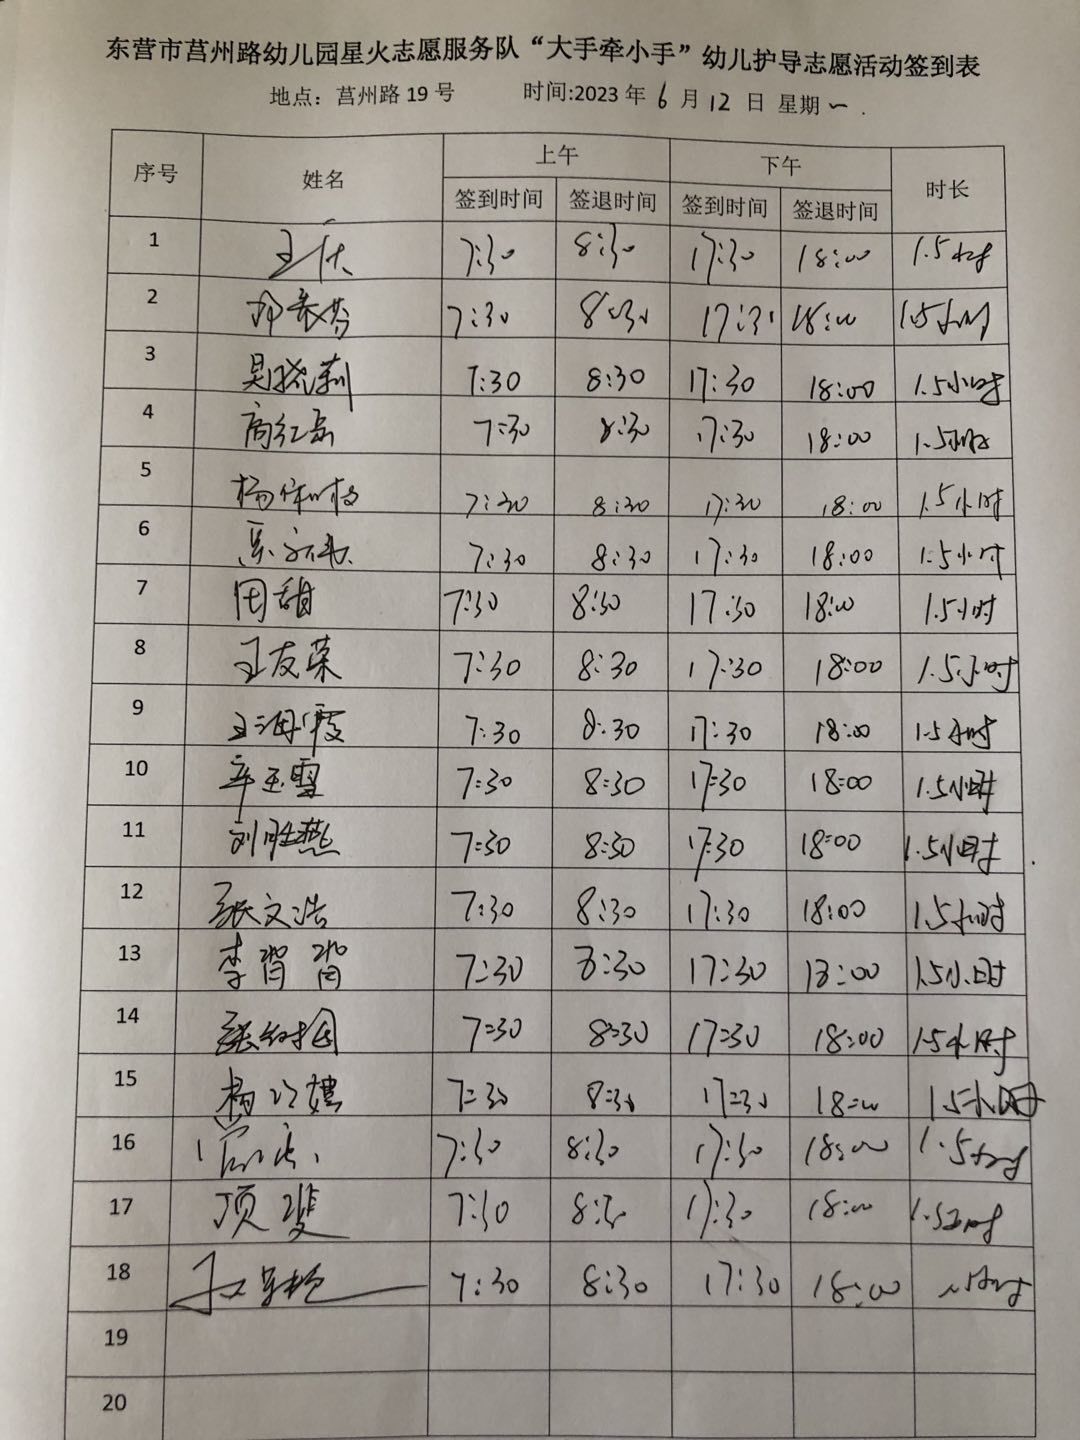 东营市莒州路幼儿园星火志愿服务队“大手牵小手”幼儿护导志愿活动签到表
地点：莒州路 19 号 时间:2023 年 6 月 12 日 星期 一 .
序号 姓名 上午 下午 时长
签到时间 签退时间 签到时间 签退时间
1 7:30 8:30 17:30 18:00 1.5小时
2 7:30 8:30 17:30 18:00 1.5小时
3 吴晓莉 7:30 8:30 17:30 18:00 1.5小时
4 7:30 8:30 17:30 18:00 1.5小时
5 7:30 8:30 17:30 18:00 1.5小时
6 7:30 8:30 17:30 18:00 1.5小时
7 田甜 7:30 8:30 17:30 18:00 1.5小时
8 王友荣 7:30 8:30 17:30 18:00 1.5小时
9 王海霞 7:30 8:30 17:30 18:00 1.5小时
10 辛玉雪 7:30 8:30 17:30 18:00 1.5小时
11 刘胜燕 7:30 8:30 17:30 18:00 1.5小时
12 张文浩 7:30 8:30 17:30 18:00 1.5小时
13 李 7:30 8:30 17:30 18:00 1.5小时
14 7:30 8:30 17:30 18:00 1.5小时
15 7:30 8:30 17:30 18:00 1.5小时
16 7:30 8:30 17:30 18:00 1.5小时
17 7:30 8:30 17:30 18:00 1.5小时
18 7:30 8:30 17:30 18:00 1.5小时
19
20